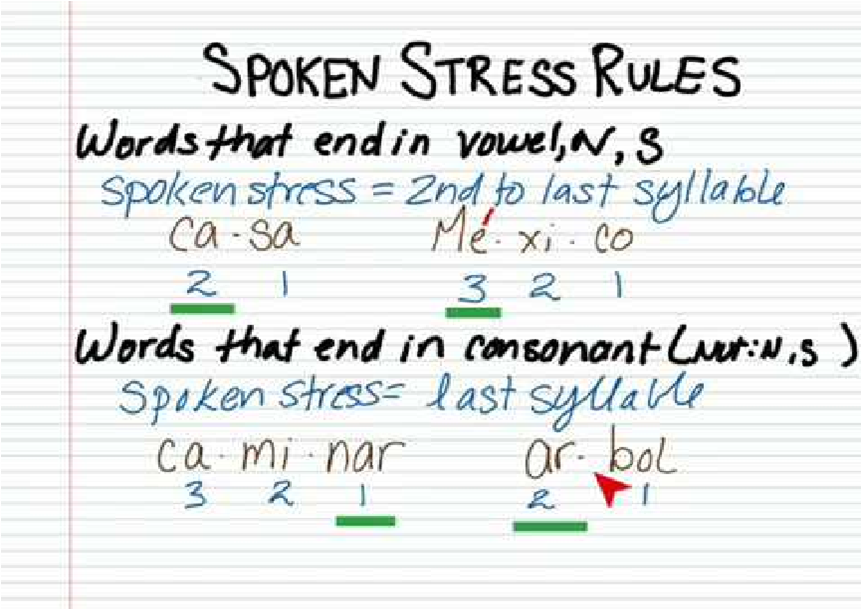 SPOKEN STRESS RULES
Words that end in vowel, N, S
Spoken stress = 2nd to last syllable
ca·sa Mé·xi·co
2 1 3 2 1
Words that end in consonant (NOT: N, S )
Spoken stress = last syllable
ca·mi·nar ar·bol
3 2 1 2 1